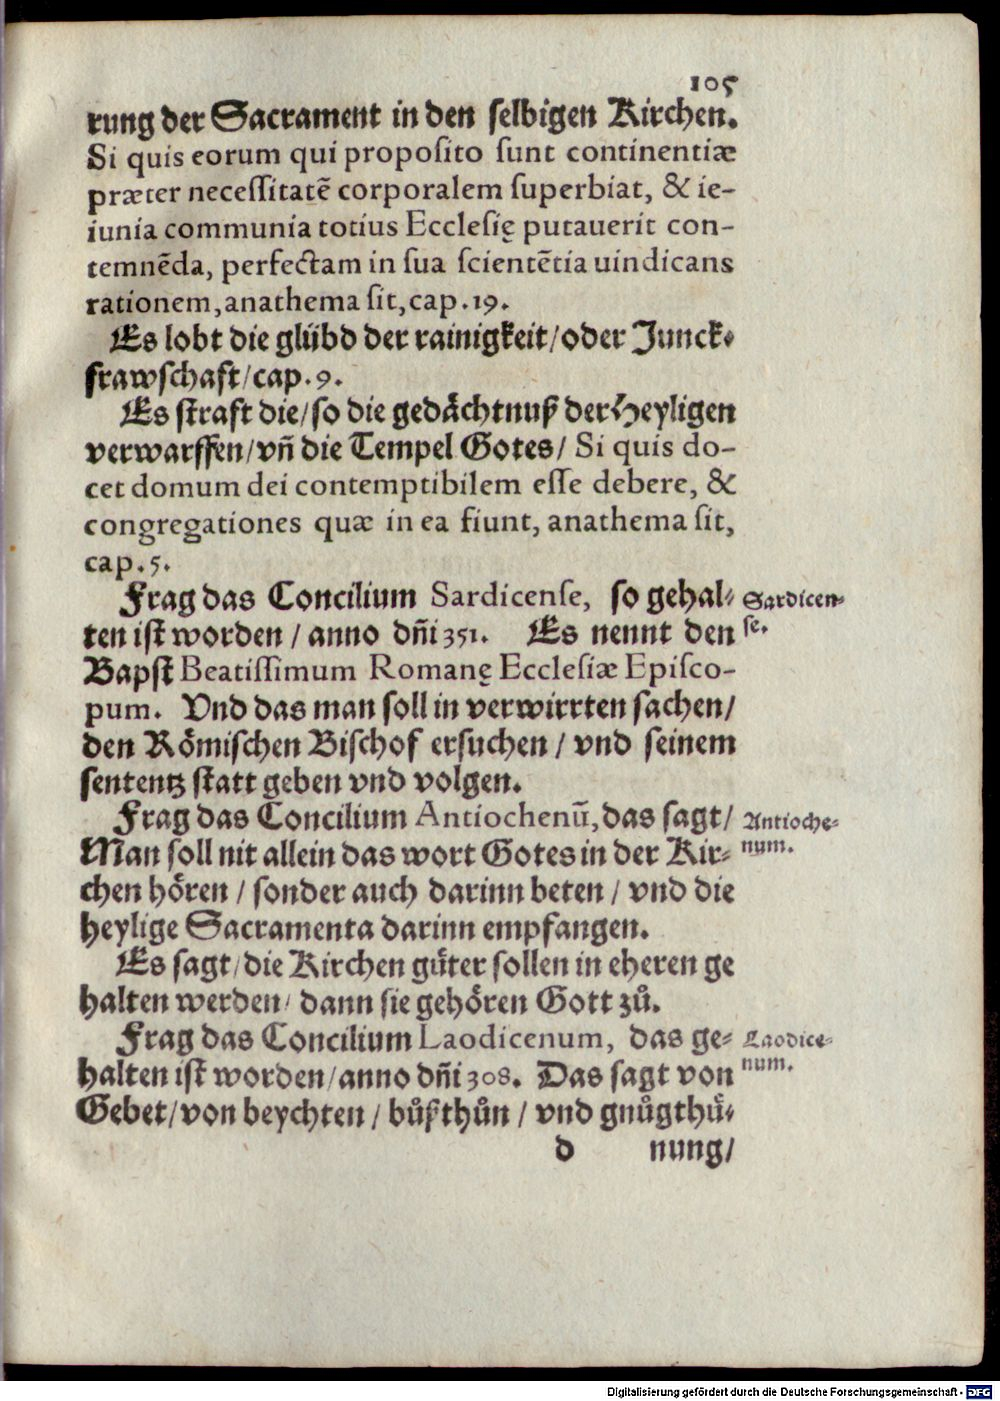 105
rung der Sacrament in den selbigen Kirchen.
Si quis eorum qui proposito sunt continentiæ
præter necessitatē corporalem superbiat, & ie-
iunia communia totius Ecclesię putauerit con-
temnēda, perfectam in sua scientētia uindicans
rationem, anathema sit, cap. 19.
Es lobt die glübd der rainigkeit/ oder Junck-
frawschaft/ cap. 9.
Es straft die/ so die gedächtnuß der Heyligen
verwarffen/ vñ die Tempel Gotes/ Si quis do-
cet domum dei contemptibilem esse debere, &
congregationes quæ in ea fiunt, anathema sit,
cap. 5.
Frag das Concilium Sardicense, so gehal- Sardicen-
ten ist worden/ anno dñi 351. Es nennt den se.
Bapst Beatissimum Romanę Ecclesiæ Episco-
pum. Vnd das man soll in verwirrten sachen/
den Römischen Bischof ersuchen/ vnd seinem
sententz statt geben vnd volgen.
Frag das Concilium Antiochenū, das sagt/ Antioche-
Man soll nit allein das wort Gotes in der Kir- num.
chen hören/ sonder auch darinn beten/ vnd die
heylige Sacramenta darinn empfangen.
Es sagt/ die Kirchen güter sollen in eheren ge
halten werden/ dann sie gehören Gott zů.
Frag das Concilium Laodicenum, das ge- Laodice-
halten ist worden/ anno dñi 308. Das sagt von num.
Gebet/ von beychten/ bůßthůn/ vnd gnůgthů-
d nung/
Digitalisierung gefördert durch die Deutsche Forschungsgemeinschaft - DFG